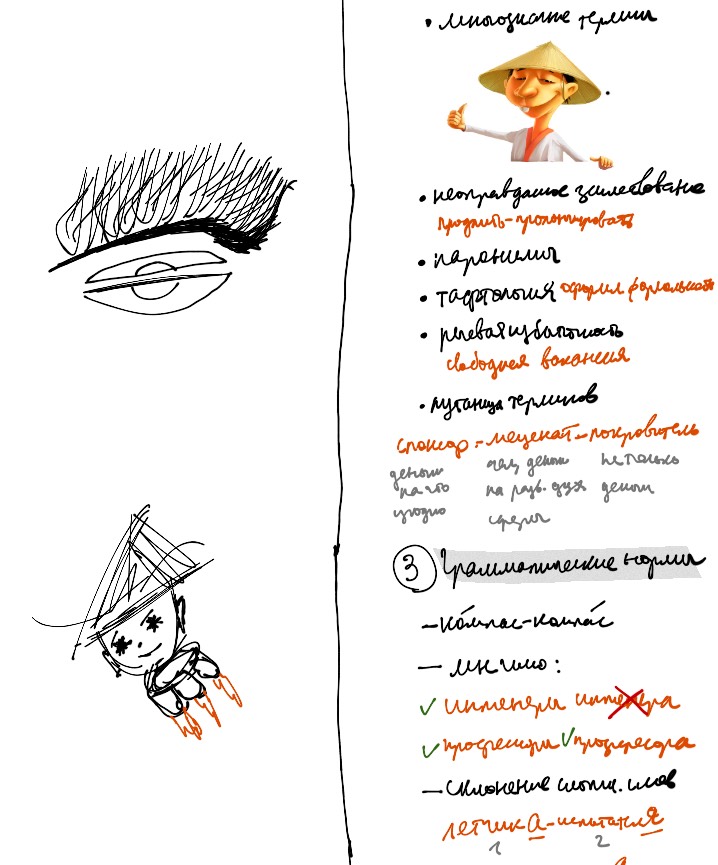 • многозначные термины
• неоправданное заимствование
продлить - пролонгировать
• паронимия
• тавтология оформил формальность
• речевая избыточность
свободная вакансия
• путаница терминов
спонсор - меценат - покровитель
деньги на что угодно
чел, деньги на разв. дух сферы
не только деньги
③ Грамматические нормы
- ко́мпас - компа́с
- мн число:
✓ инженеры инженера
✓ профессоры ✓ профессора
- склонение слож. слов
летчика - испытателя
1 2